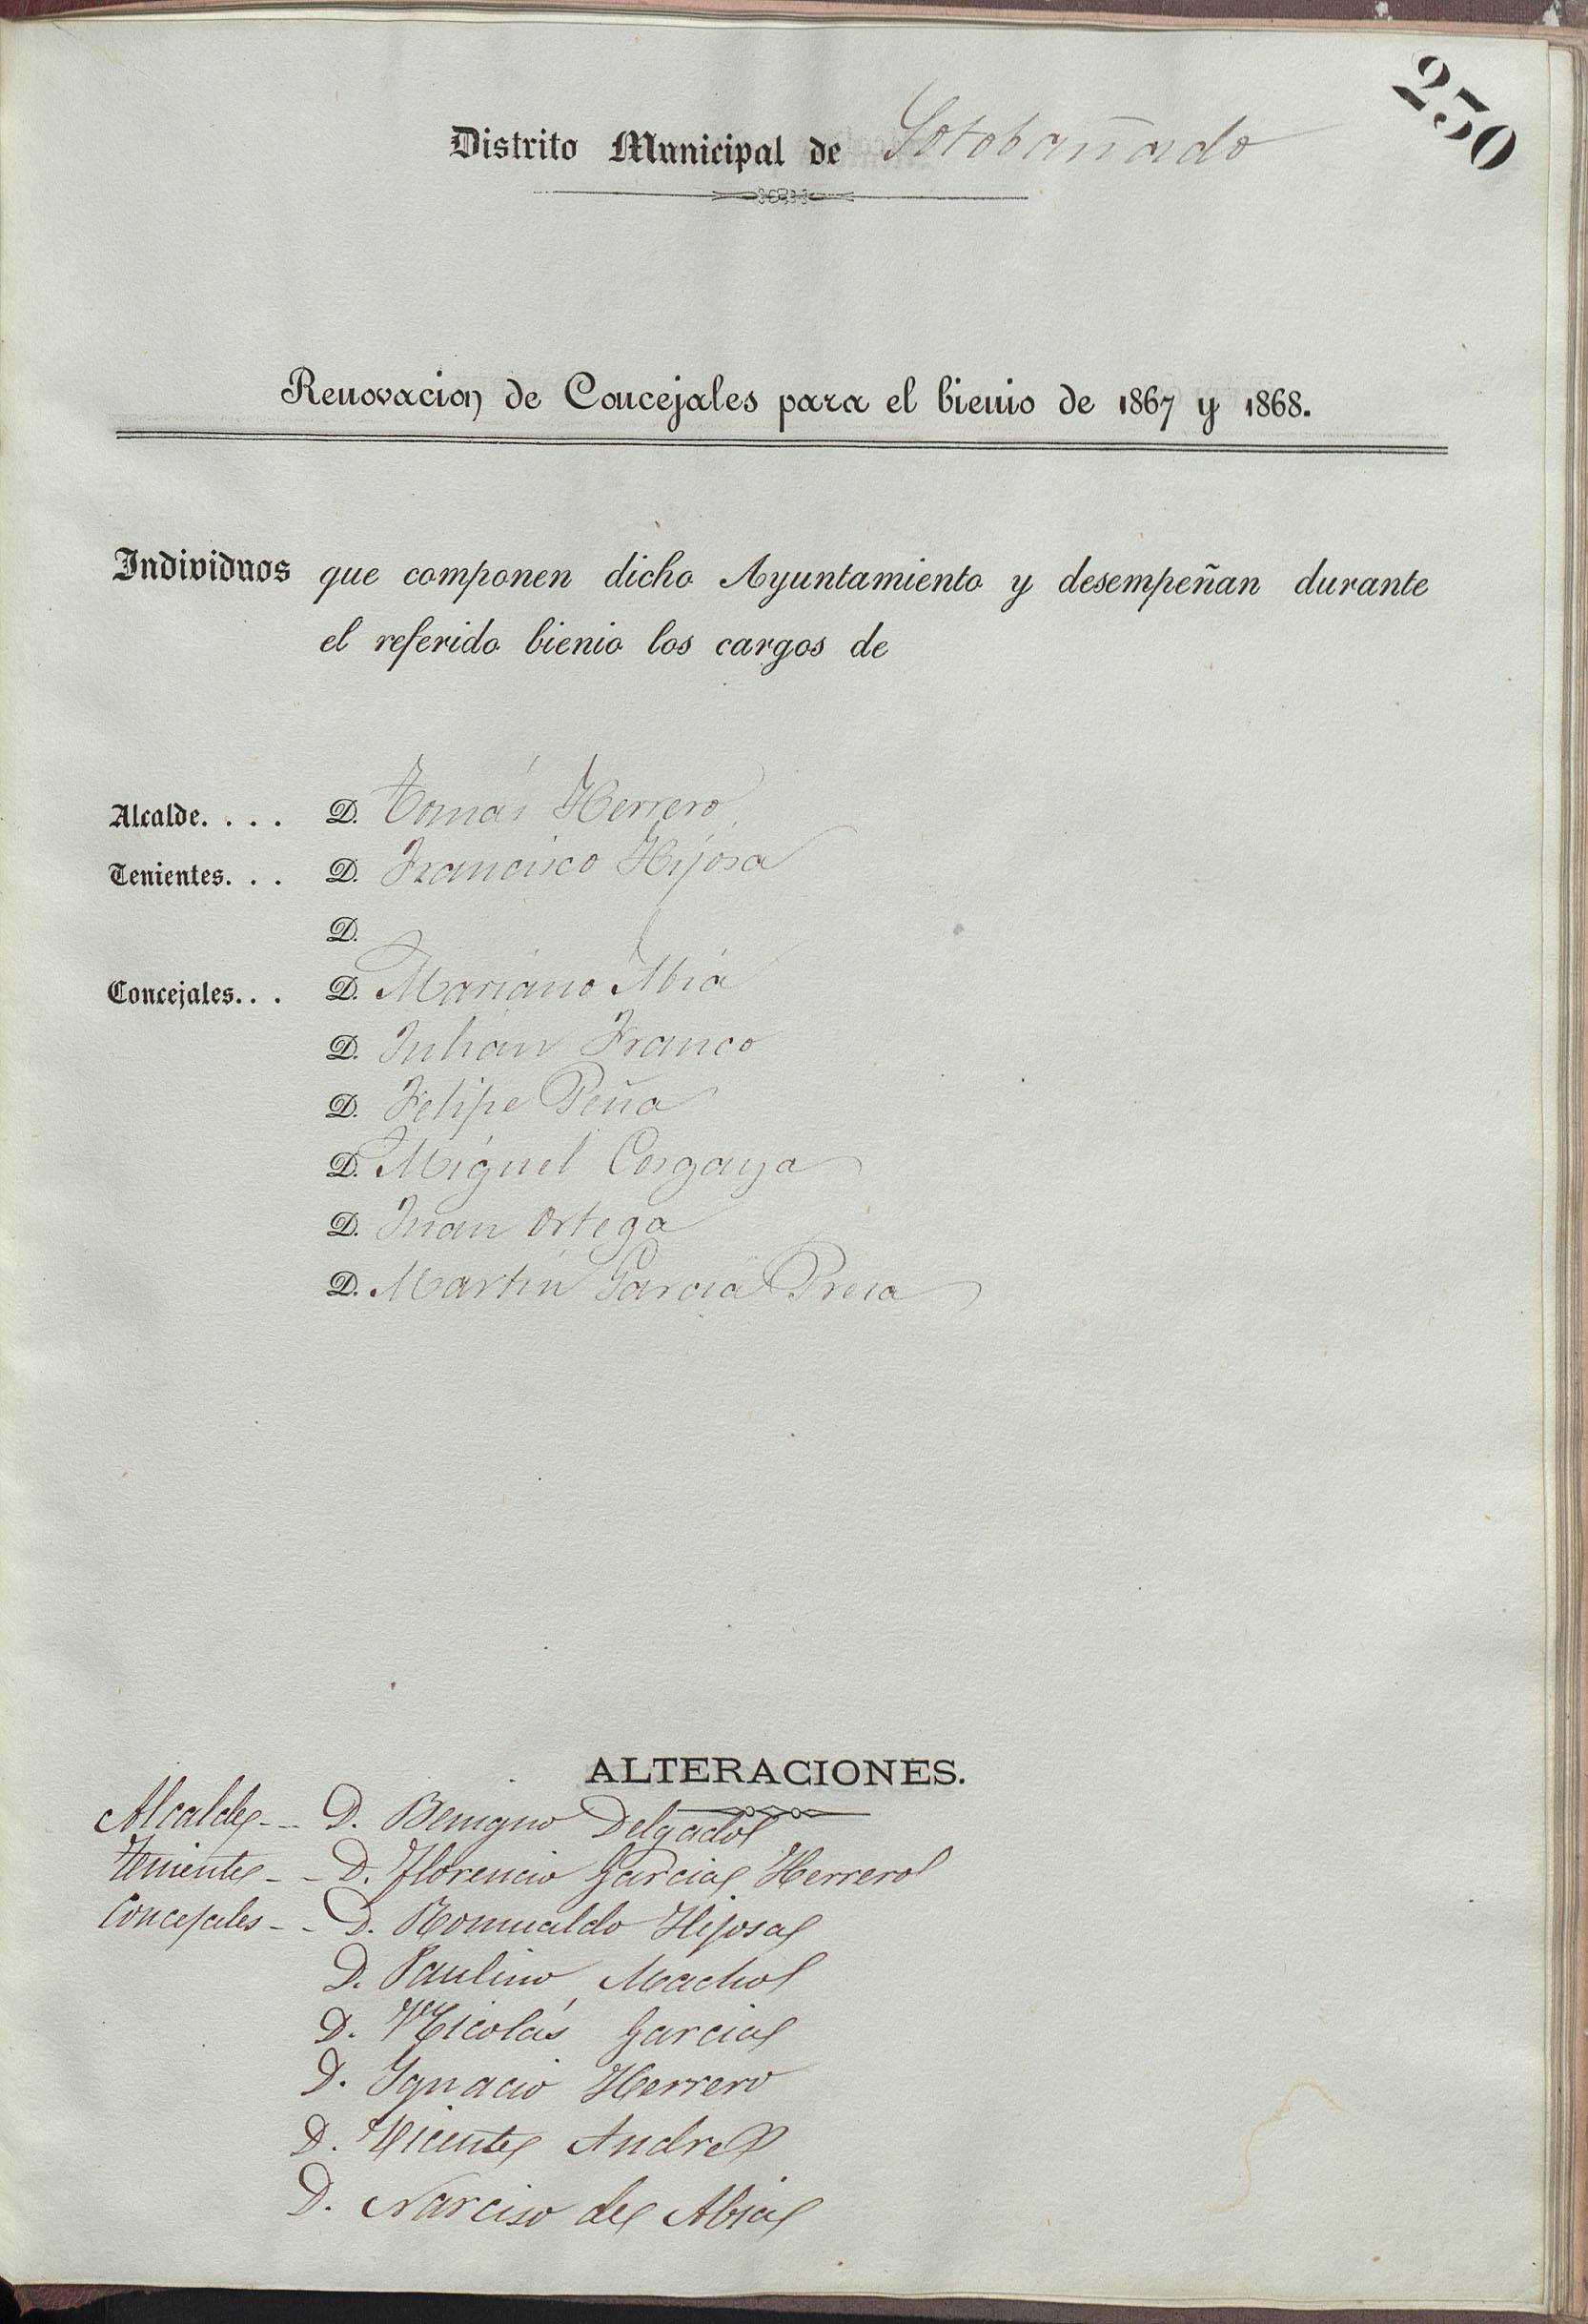 250
Distrito Municipal de Sotobañado
Renovacion de Concejales para el bienio de 1867 y 1868.
Individuos que componen dicho Ayuntamiento y desempeñan durante
el referido bienio los cargos de
Alcalde. . . . D. Tomás Herrero
Tenientes. . . D. Francisco Hijosa
D.
Concejales. . . D. Mariano Abia
D. Julián Franco
D. Felipe Peña
D. Miguel Cosgaya
D. Juan Ortega
D. Martín García Presa
ALTERACIONES.
Alcalde - - D. Benigno Delgado
Teniente - - D. Florencio Garcia Herrero
Concejales - - D. Romualdo Hijosa
D. Paulino Macho
D. Nicolás Garcia
D. Ignacio Herrero
D. Vicente Andres
D. Narciso de Abia